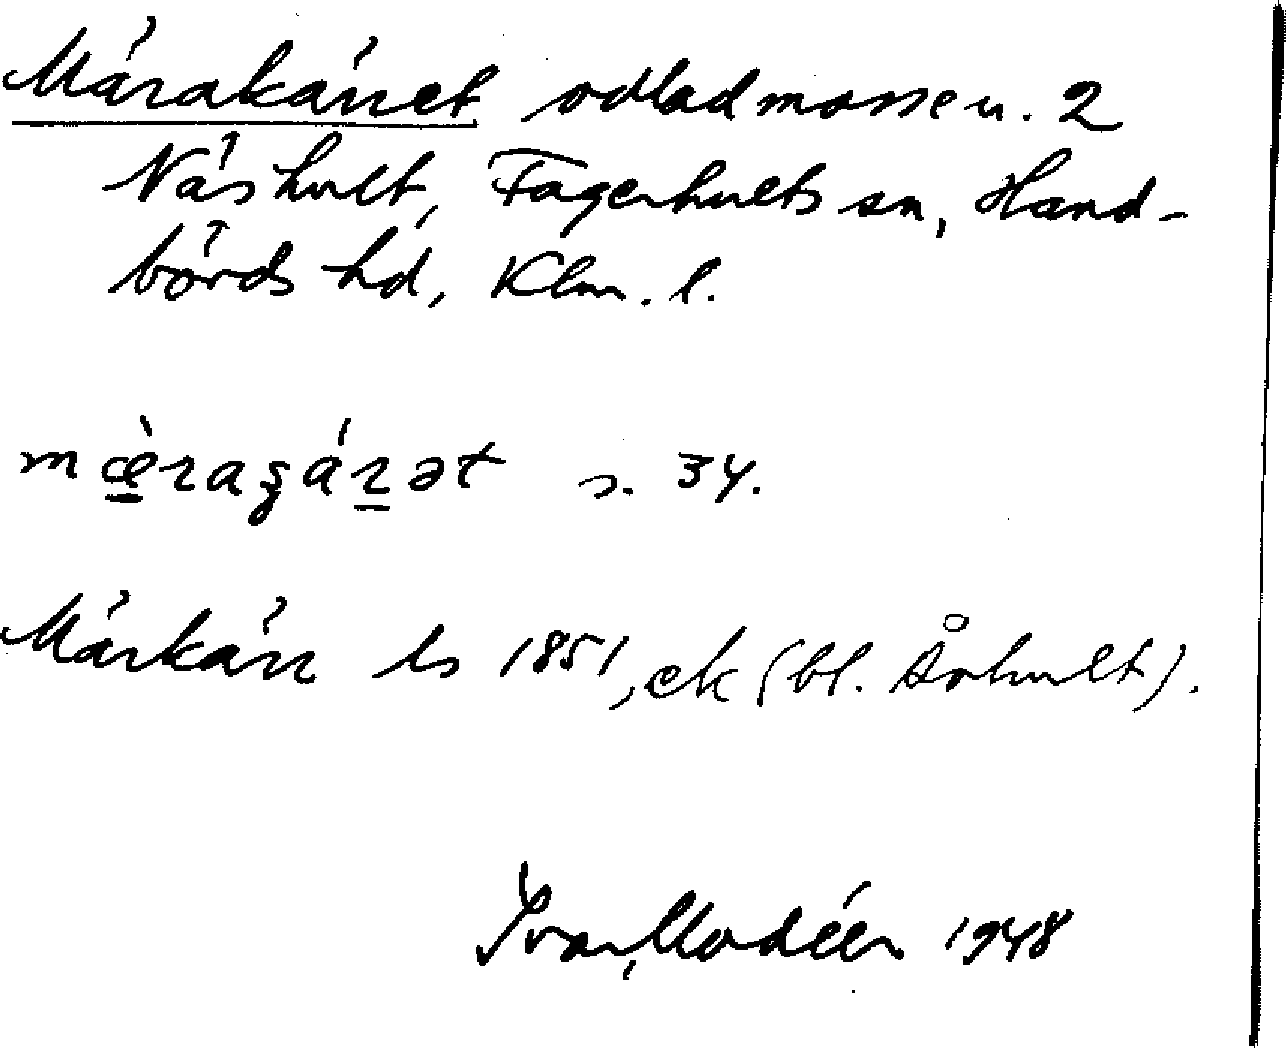 Märakärret odlad mosse u. 2
Näshult, Fagerhults sn, Hand-
börds hd, Klm. l.
mæ̀ragárət s. 34.
Märkärr ls 1851, ek (bl. Århult).
Ivar Modéer 1948